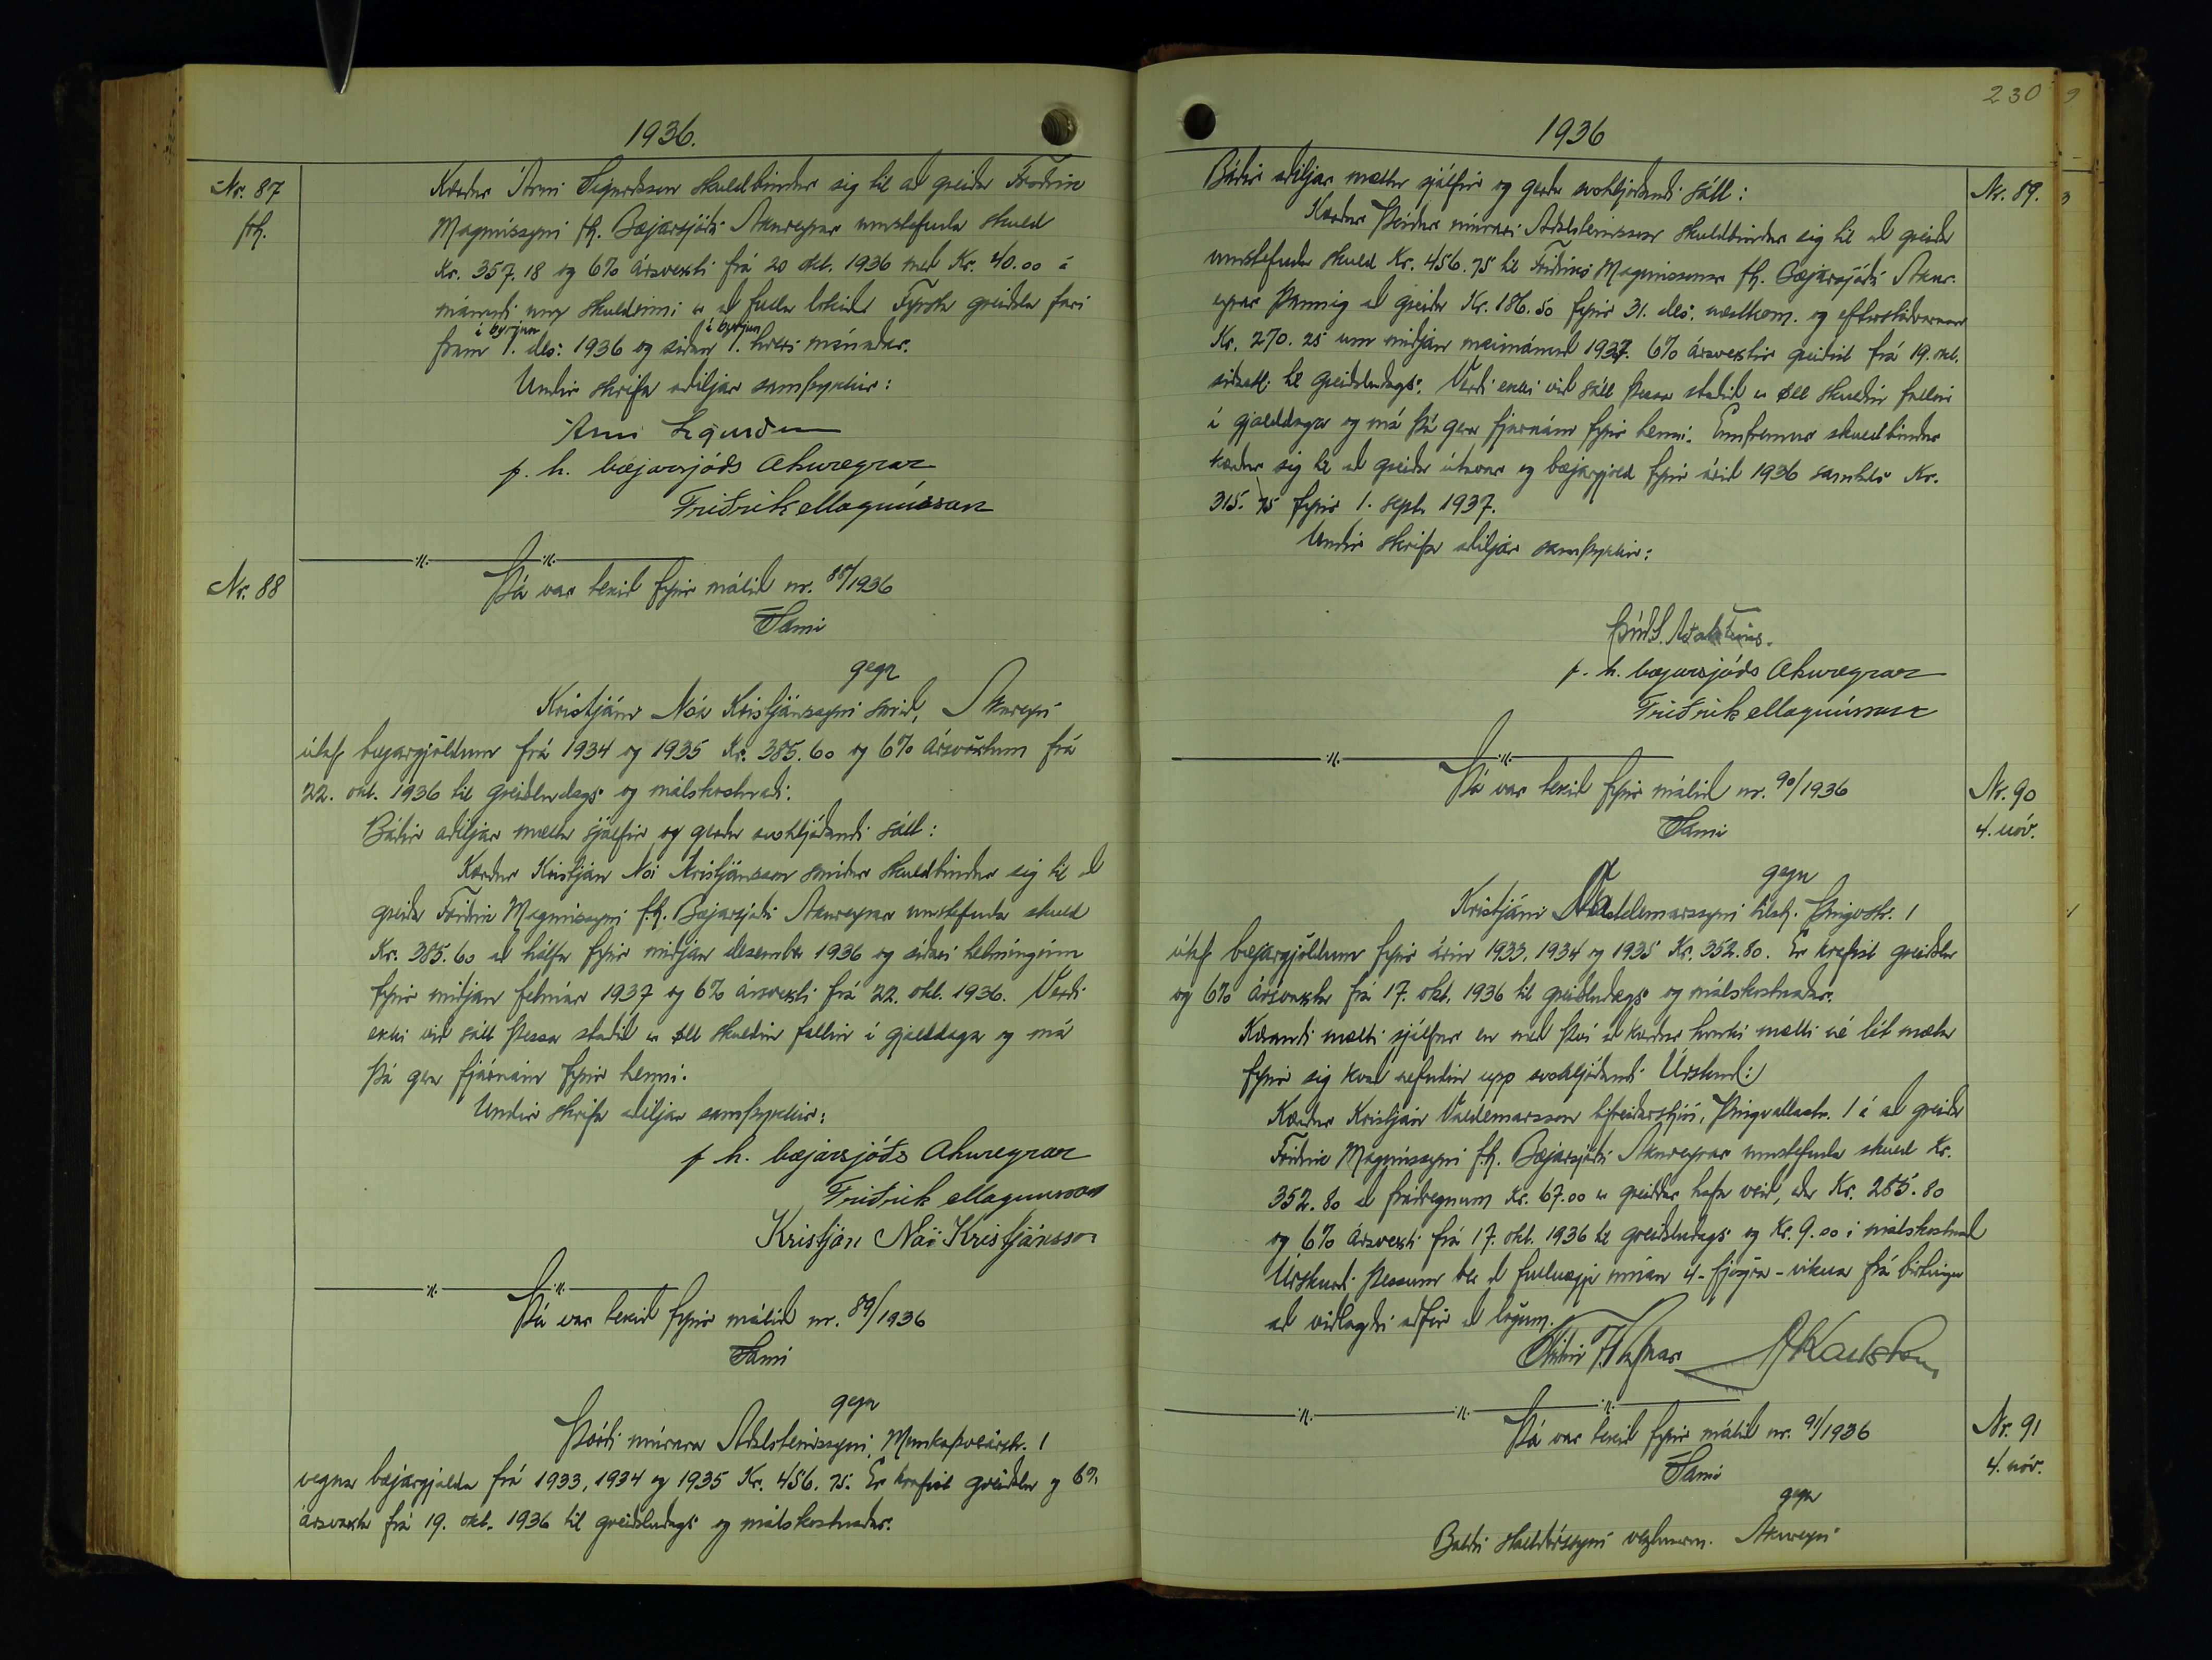 1936.
Nr. 87
frh.
Kærður Árni Sigurðsson skuldbindur sig til að greiða Friðrik
Magnússyni fh. Bæjarsjóðs Akureyrar umstefnda skuld
Kr. 357.18 og 6% ársvexti frá 20 okt. 1936 með Kr. 40.00 á
mánuði unz skuldinni er að fullu lokið Fyrsta greiðsla fari
fram í byrjun 1. des: 1936 og síðan í byrjun 1. hvers mánaðar.
Undir skrifa aðiljar samþykkir:
Árni Sigurðsson
f. h. bæjarsjóðs Akureyrar
Friðrik Magnússon
Nr. 88
Þá var tekið fyrir málið nr. 88/1936
Sami
gegn
Kristjáni Nóa Kristjánssyni smið, Akureyri
útaf bæjargjöldum frá 1934 og 1935 Kr. 385.60 og 6% ársvöxtum frá
22. okt. 1936 til greiðsludags og málskostnaði.
Báðir aðiljar mættu sjálfir og gerðu svohljóðandi sátt:
Kærður Kristján Nói Kristjánsson smiður skuldbindur sig til að
greiða Friðrik Magnússyni f.h. Bæjarsjóðs Akureyrar umstefnda skuld
Kr. 385.60 að hálfu fyrir miðjan desember 1936 og síðari helminginn
fyrir miðjan febrúar 1937 og 6% ársvexti frá 22. okt. 1936. Verði
ekki við sátt þessa staðið er öll skuldin fallin í gjalddaga og má
þá gera fjárnám fyrir henni.
Undir skrifa aðiljar samþykkir:
f h. bæjarsjóðs Akureyrar
Friðrik Magnússon
Kristján Nói Kristjánsson
Þá var tekið fyrir málið nr. 89/1936
Sami
gegn
Þórði múrara Aðalsteinssyni, Munkaþverárstr. 1
vegna bæjargjalda frá 1933, 1934 og 1935 Kr. 456.75. Er krafist greiðslu og 6%
ársvexta frá 19. okt. 1936 til greiðsludags og málskostnaðar.
230
1936
Nr. 89.
Báðir aðiljar mættu sjálfir og gerðu svohljóðandi sátt:
Kærður Þórður múrari Aðalsteinsson skuldbindur sig til að greiða
umstefnda skuld Kr. 456.75 til Friðriks Magnússonar fh. Bæjarsjóðs Akur-
eyrar þannig að greiða Kr. 186.50 fyrir 31. des. næstkom. og eftirstöðvarnar
Kr. 270.25 um miðjan maimánuð 1937. 6% ársvextir greiðist frá 19. okt.
síðastl. til greiðsludags. Verði ekki við sátt þessa staðið er öll skuldin fallin
í gjalddaga og má þá gera fjárnám fyrir henni. Ennfremur skuldbindur
kærður sig til að greiða útsvar og bæjargjöld fyrir árið 1936 samtals Kr.
315.75 fyrir 1. sept. 1937.
Undir skrifa aðiljar samþykkir:
Þórð. Aðalsteins.
f. h. bæjarsjóðs Akureyrar
Friðrik Magnússon
Nr. 90
4. nóv.
Þá var tekið fyrir málið nr. 90/1936
Sami
gegn
Kristjáni Valdemarssyni bílstj. Þingvstr. 1
útaf bæjargjöldum fyrir árin 1933, 1934 og 1935 Kr. 352.80. Er krafist greiðslu
og 6% ársvexta frá 17. okt. 1936 til greiðsludags og málskostnaðar.
Kærandi mætti sjálfur en með því að kærður hvorki mætti né lét mæta
fyrir sig kvað nefndin upp svohljóðandi Úrskurð:
Kærður Kristján Valdemarsson bifreiðarstjóri, Þingvallastr. 1 á að greiða
Friðrik Magnússyni f.h. Bæjarsjóðs Akureyrar umstefnda skuld Kr.
352.80 að frádregnum Kr. 67.00 er greiddar hafa verið, eða Kr. 285.80
og 6% ársvexti frá 17. okt. 1936 til greiðsludags og Kr. 9.00 í málskostnað
Úrskurði þessum ber að fullnægja innan 4-fjögra-vikna frá birtingu
að viðlagðri aðför að lögum.
Nr. 91
4. nóv.
Þá var tekið fyrir málið nr. 91/1936
Sami
gegn
Baldri Halldórssyni verzlunarm. Akureyri